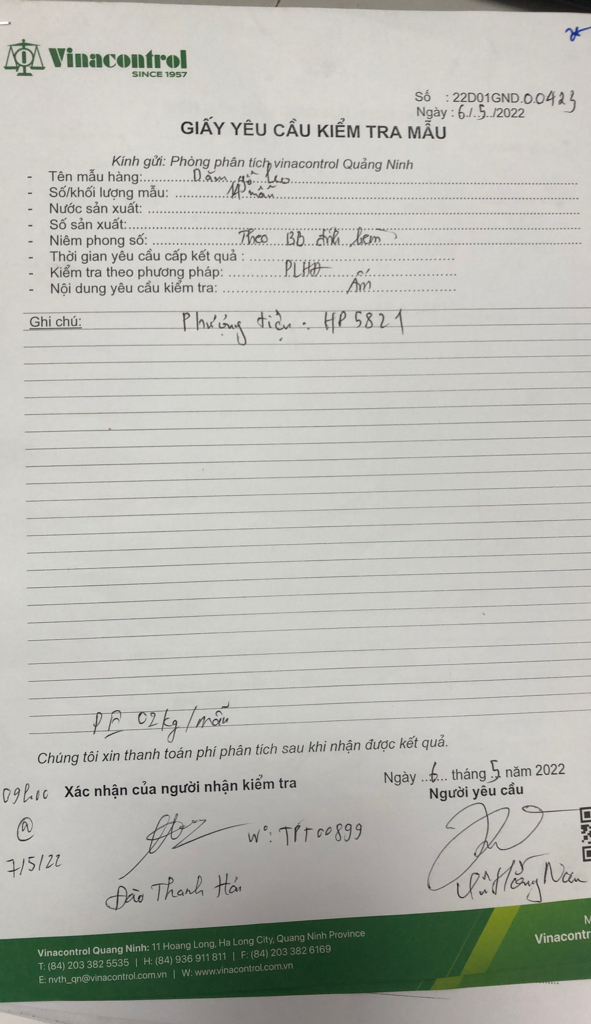 Vinacontrol
SINCE 1957
Số : 22D01GND.00423
Ngày : 6/5/2022
GIẤY YÊU CẦU KIỂM TRA MẪU
Kính gửi: Phòng phân tích vinacontrol Quảng Ninh
- Tên mẫu hàng: Dăm gỗ keo
- Số/khối lượng mẫu: mẫu
- Nước sản xuất:
- Số sản xuất:
- Niêm phong số: Theo BB đính kèm
- Thời gian yêu cầu cấp kết quả :
- Kiểm tra theo phương pháp: PLHĐ
- Nội dung yêu cầu kiểm tra: Ẩm
Ghi chú: Phương tiện : HP 5821
02kg/mẫu
Chúng tôi xin thanh toán phí phân tích sau khi nhận được kết quả.
Ngày 6 tháng 5 năm 2022
09h00 Xác nhận của người nhận kiểm tra Người yêu cầu
@
7/5/22
W°: TPT00899
Đào Thanh Hải
Hồng Nam
Vinacontrol Quang Ninh: 11 Hoang Long, Ha Long City, Quang Ninh Province
T: (84) 203 382 5535 | H: (84) 936 911 811 | F: (84) 203 382 6169
E: nvth_qn@vinacontrol.com.vn | W: www.vinacontrol.com.vn
M
Vinacontr